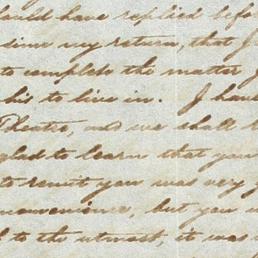 ould have replied befo
sime my return, that I
to complete the matter I
bit to live in. I hav
Theatre, and we shall
glad to learn that you
to remit you was very
nconvenience, but you
to the utmost, it was